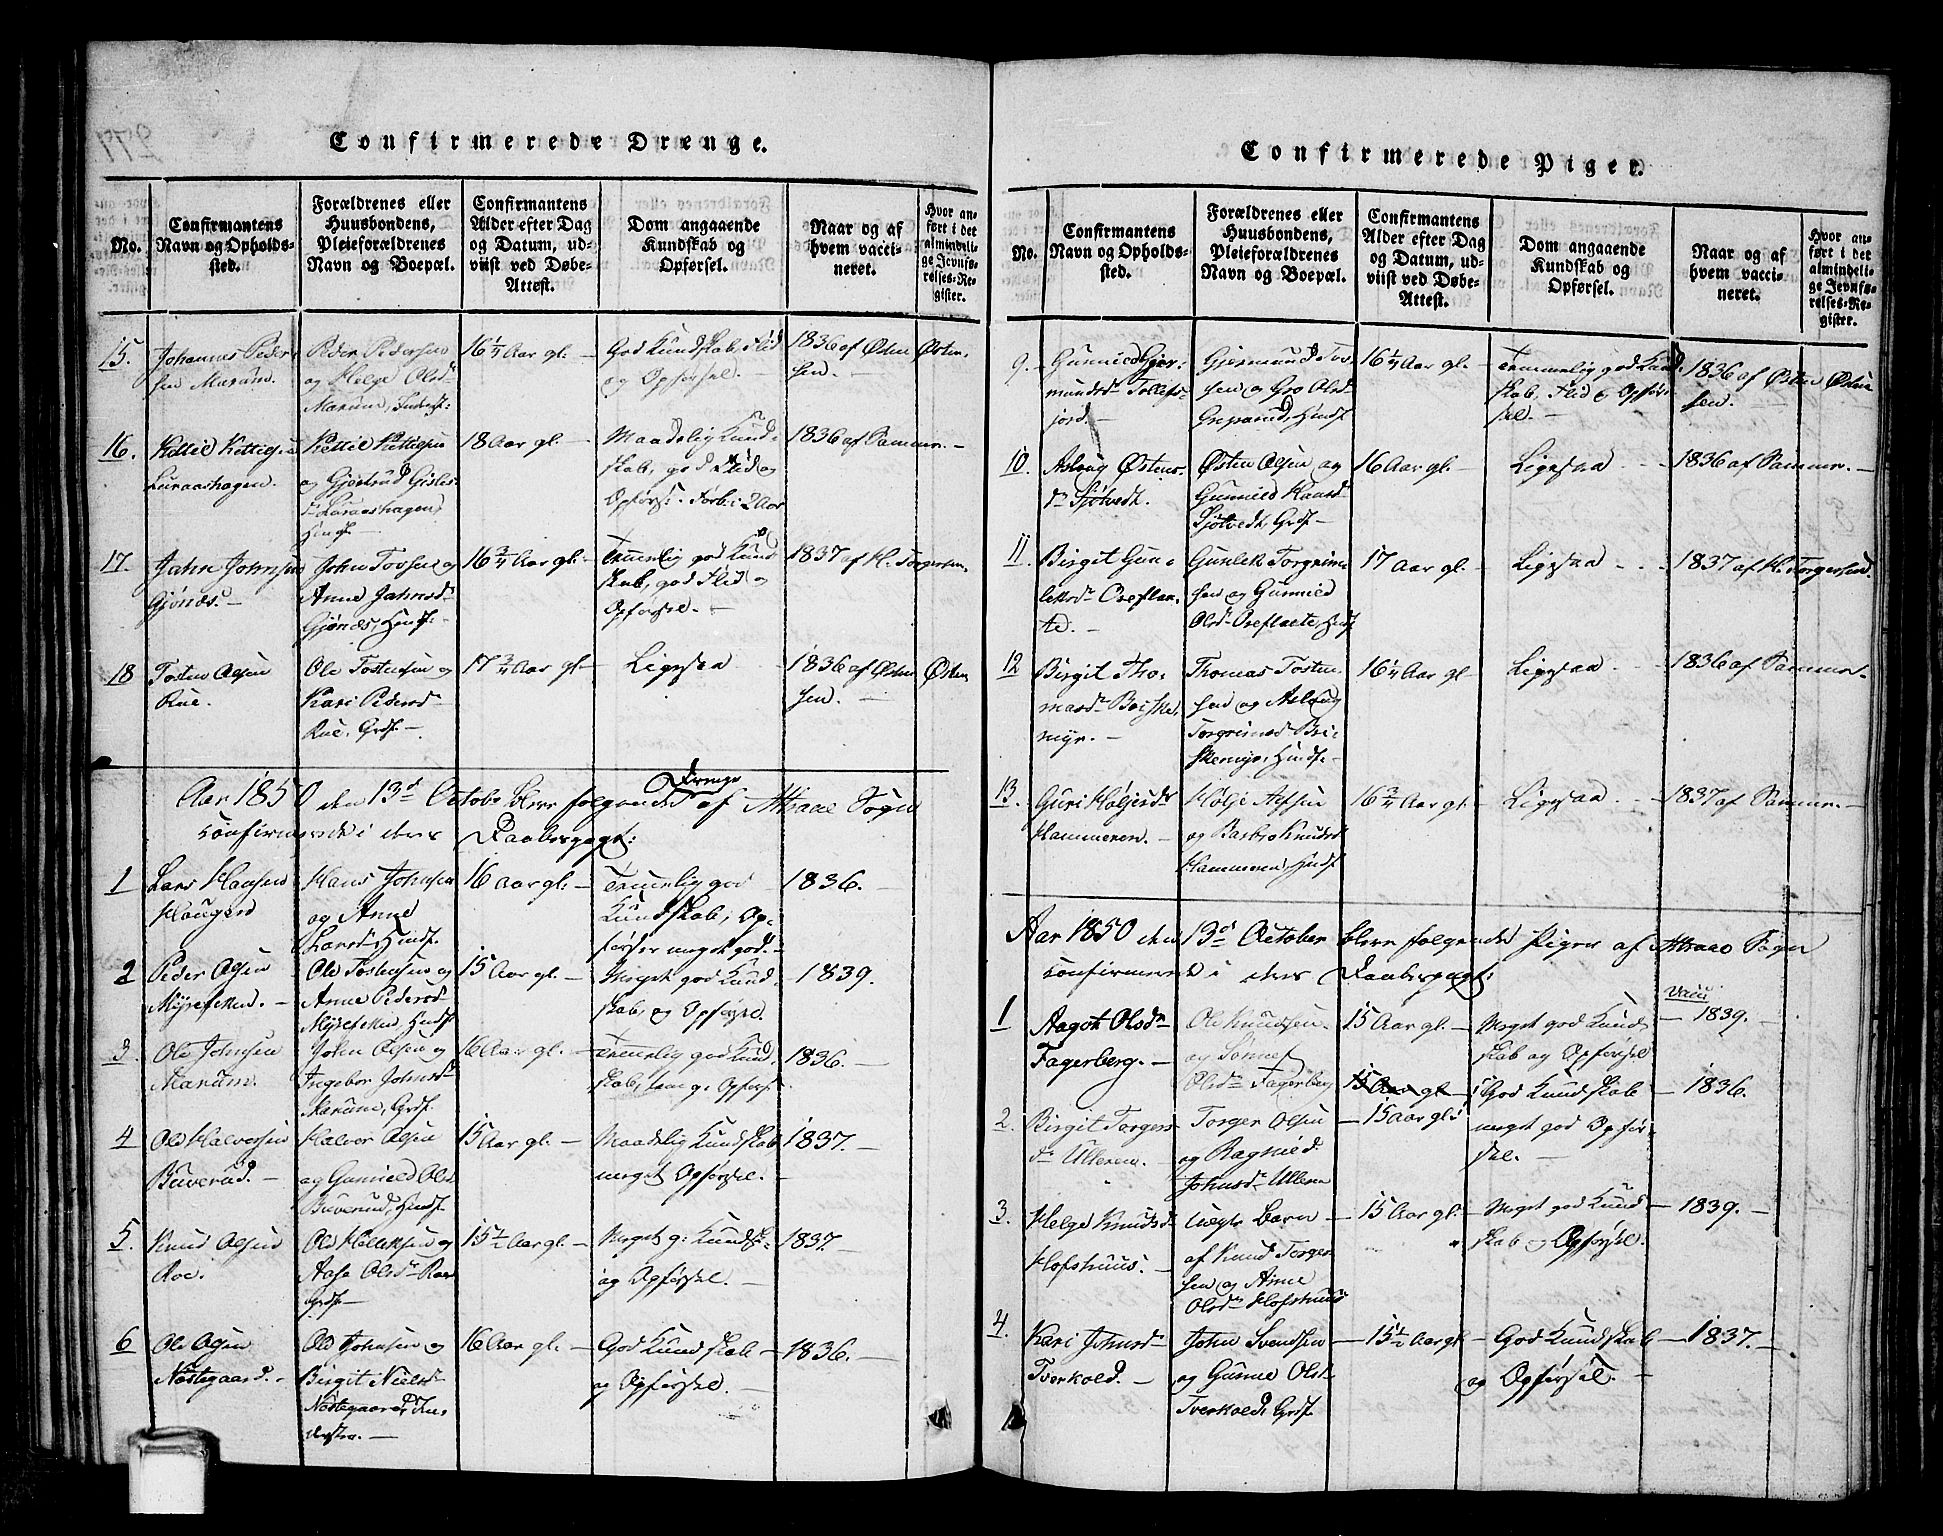 277
Confirmerede Drenge.
No.
Confirmantens Navn og Opholds-sted.
Forældrenes eller Huusbondens, Pleieforældrenes Navn og Boepæl.
Confirmantens Alder efter Dag og Datum, ud-viist ved Døbe-Attest.
Dom angaaende Kundskab og Opførsel.
Naar og af hvem vacci-neret.
Hvor an-ført i det almindeli-ge Jevnfø-relses-Re-gister.
15.
Johannes Peder-
sen Marum.
Peder Pedersen
og Helge Olsd.
Marum,
16 1/4 Aar gl. –
God Kundskab, Flid
og Opførsel. –
1836 af Østen Østen-
sen. –
16.
Kittil Kittilsen
Luraashagen.
Kittil Kittilsen
og Gjertrud Gisles-
dr Luraashagen,
Huusf.
18 Aar gl. –
Maadelig Kund-
skab, god Flid og
Opførs. Forb. i 2 Aar
1836 af Sammen. –
17.
Jahn Johnsen
Gjønæs. –
John Tovsen og
Anne Jahnsd.
Gjønæs, Huusf. –
16 3/4 Aar gl. –
Temmelig god Kund
skab, god Flid og
Opførsel. –
1837 af H. Torgersen.
18
Tosten Olsen
Rue.
Ole Tostensen og
Kari Pedersd.
Rue, Grdf. –
17 3/4 Aar gl –
Ligesaa
1836 af Østen Østen
sen. –
Aar 1850 den 13d Octobr bleve følgende Drenge af Attraae Sogn
confirmerede i deres Daabespagt:
1
Lars Hansen
Haugen
Hans Johnsen
og Anne
Larsd. Huusf.
16 Aar gl: –
Temmelig god
Kundskab, Op-
førsel meget god. –
1836. –
2
Peder Olsen
Myrefeken. –
Ole Tostensen og
Anne Pedersd.
Myrefeken, Huusf
15 Aar gl. –
Meget god Kund
skab, og Opførsel.
1839.
3.
Ole Johnsen
Marum.
John Olsen og
Ingebor Johnsd.
Marum, Grdf.
16 Aar gl. –
Temmelig god Kund
skab, Opførs
1836. –
4
Ole Halvorsen
Buverud. –
Halvor Olsen
og Gunnild Olsd
Buverud, Huusf.
15 Aar gl. –
Maadelig Kundskab
meget Opførsel. –
1837. –
5.
Knud Olsen
Roe.
Ole
og
Aase Olsd.
Grdf –
15 1/2 Aar gl. –
Meget g: Kundsk:
og Opførsel. –
1837. –
6
Ole Olsen
Nostegaard. –
Ole Johnsen og
Birgit Nielsd.
Nostegaard, In-
derstn. –
16 Aar gl. –
God Kundskab –
og Opførsel. –
1836. –
Confirmerede Piger.
No.
Confirmantens Navn og Opholds-sted.
Forældrenes eller Huusbondens, Pleieforældrenes Navn og Boepæl.
Confirmantens Alder efter Dag og Datum, ud-viist ved Døbe-Attest.
Dom angaaende Kundskab og Opførsel.
Naar og af hvem vacci-neret.
Hvor an-ført i det almindeli-ge Jevnfø-relses-Re-gister.
9. –
Gunnild Gjer-
mundsd. Tollefs-
jord.
Gjermund Tov-
sen og Gro Olsd
Huusf
16 1/4 Aar gl –
Temmelig god Kund
skab, Flid & Opfør-
sel. –
1836 af Østen Østen
sen. –
10.
Aslaug Østens-
dr Sjøtvedt.
Østen Olsen og
Gunnild Hansd.
Sjøtvedt, Grdf –
16 Aar gl –
Ligesaa
1836 af Sammen. –
11.
Birgit Gun-
leksd. Oreflaa-
te. –
Gunlek Torgrim-
sen og Gunnild
Olsd. Oreflaate, Huusf
17 Aar gl. –
Ligesaa
1837 af H. Torgersen.
12
Birgit Tho-
masd. Briske-
myr. –
Thomas Tosten-
sen og Aslaug
Torgrimsd Bri-
skemyr, Huusf. –
16 1/4 Aar gl –
Ligesaa
1836 af Sammen. –
13.
Guri Høljesd.
Hammeren. –
Hølje Alfsen
og Barbro Knudsd
Hammeren, Huusf
16 3/4 Aar gl.
Ligesaa
1837 af Sammen. –
Aar 1850 den 13d October bleve følgende Piger af Attraae Sogn
confirmerede i deres Daabespagt:
1
Aagot Olsdr
Fagerberg. –
Ole Knudsen
og
Olsdr Fagerberg
15 Aar gl. –
Meget god Kund-
skab og Opførsel
vacci
– 1839. –
2.
Birgit Torgers-
dr Ulleren. –
Torger Olsen
og Ragnild
Johnsdr Ulleren
15 Aar gl –
15 Aar gl.
God Kundskab
meget god Opfør-
sel. –
– 1836.
3.
Helge Knudsd.
Hofshuus. –
uægte Barn –
af Knud Torger-
sen og Anne
Olsdr Hofshuus
15 Aar gl. –
Meget god Kund-
skab og Opførsel.
– 1839. –
4.
Kari Johnsd
Tverkold. –
John Svendsen –
og Gunne Olsd.
Tverkold, Grdf.
15 1/2 Aar gl.
God Kundskab –
og Opførsel. –
– 1837. –